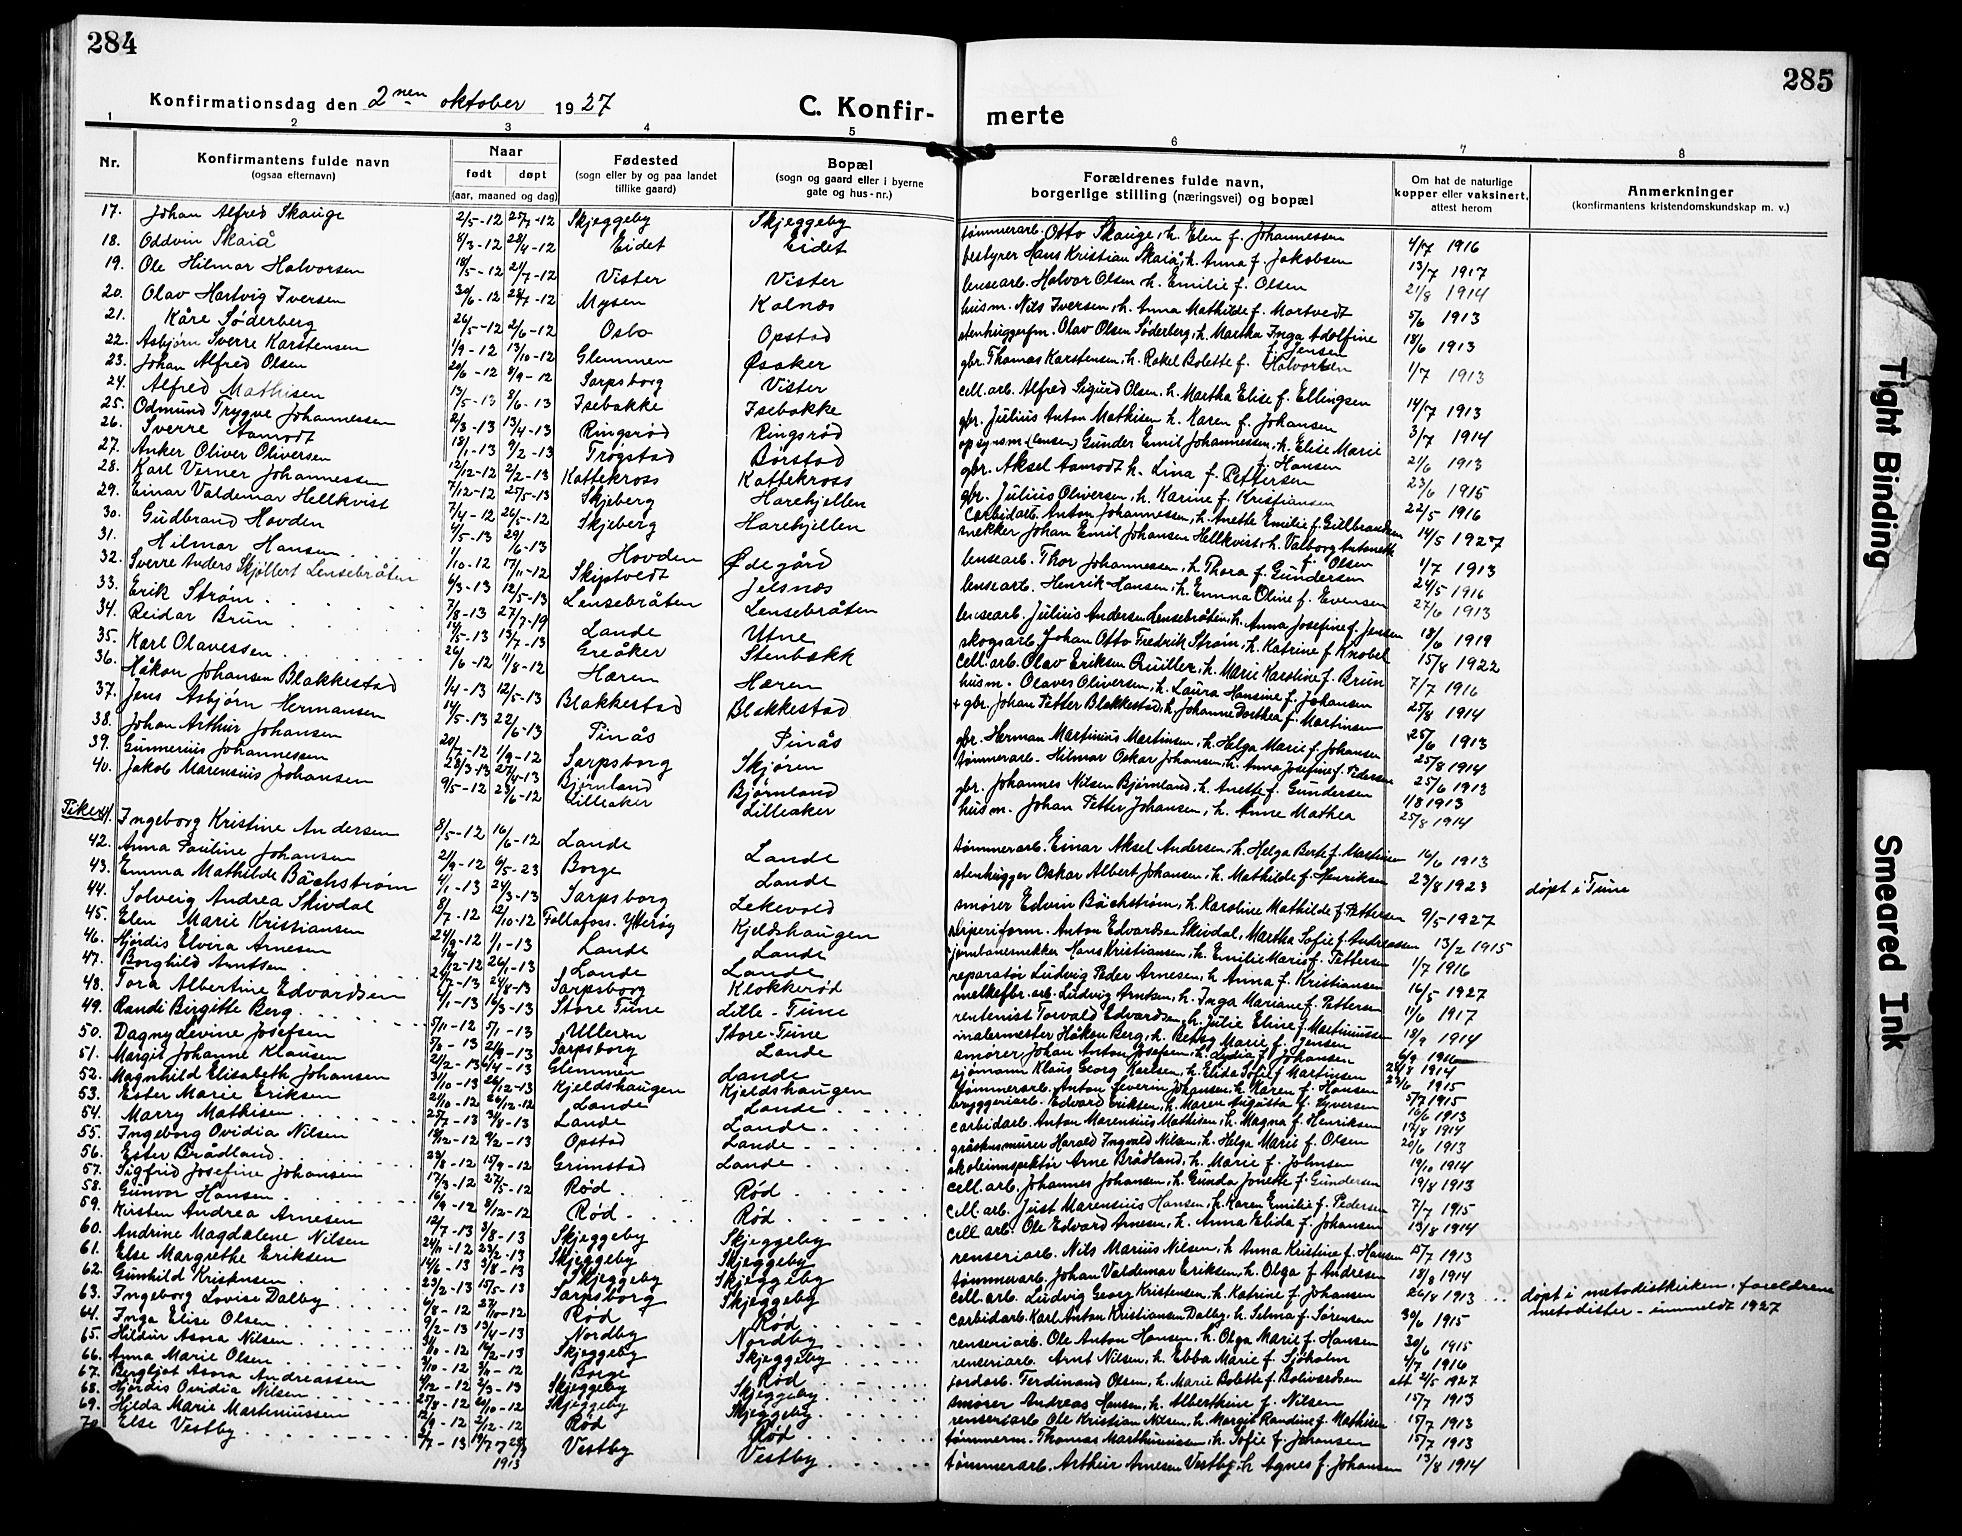 284
285
Konfirmationsdag den 2nen oktober 1927
C. Konfir- merte
1 2 3 4 5 6 7 8
Nr. Konfirmantens fulde navn (ogsaa efternavn) Naar født døpt (aar, maaned og dag) Fødested (sogn eller by og paa landet tillike gaard) Bopæl (sogn og gaard eller i byerne gate og hus-nr.) Forældrenes fulde navn, borgerlige stilling (næringsvei) og bopæl Om hat de naturlige kopper eller vaksinert, attest herom Anmerkninger (konfirmantens kristendomskundskap m. v.)
17. Johan Alfred Skauge 2/5-12 25/7-12 Skjeggeby Skjeggeby tømmerarb. Otto Skauge, h. Elen f. Johannessen 4/7 1916
18. Oddvin Skaiå 8/3-12 28/4-12 Eidet Eidet bestyrer Hans Kristian Skaiå, h. Anna f. Jakobsen 13/7 1917
19. Ole Hilmar Halvorsen 18/5-12 21/7-12 Vister Vister lensearb. Halvor Olsen h. Emilie f. Olsen 21/8 1914
20. Olav Hartvig Iversen 30/6-12 28/7-12 Mysen Kalnæs husm. Nils Iversen, h. Anna Mathilde f. Mortvedt 5/6 1913
21. Kåre Søderberg 26/5-12 2/6-12 Oslo Opstad stenhuggerfm. Olav Olsen Søderberg, h. Martha Inga Adolfine f. Jensen 18/6 1913
22. Asbjørn Sverre Karstensen 1/9-12 13/10-12 Glemmen Øsaker gbr. Thomas Karstensen, h. Rakel Bolette f. Halvorsen 1/7 1913
23. Johan Alfred Olsen 20/6-12 8/9-12 Sarpsborg Vister cell. arb. Alfred Sigurd Olsen, h. Martha Elise f. Ellingsen 14/7 1913
24. Alfred Mathisen 13/5-13 8/6-13 Isebakke Isebakke gbr. Julius Anton Mathisen h. Karen f. Johansen 3/7 1914
25. Odmund Trygve Johannessen 2/3-13 13/4-13 Ringsrød Ringsrød opsynsm. (lensen) Gunder Emil Johannessen, h. Elise Marie f. Hansen 21/6 1913
26. Sverre Aamodt 18/1-13 9/2-13 Trøgstad Børstad gbr. Aksel Aamodt h. Lina f. Pettersen 23/6 1915
27. Anker Oliver Oliversen 12/12-12 2/2-13 Kattekross Kattekross gbr. Julius Oliversen, h. Karine f. Kristiansen 22/5 1916
28. Karl Verner Johannessen 7/12-12 25/5-13 Skjeberg Harehjellen carbidarb. Anton Johannessen, h. Anette Emilie f. Gulbrandsen 14/5 1927
29. Einar Valdemar Hellkvist 7/4-12 26/5-12 Skjeberg Harehjellen snekker Johan Emil Johansen Hellkvist, h. Valborg Antonette f. Olsen 1/7 1913
30. Gudbrand Hovden 4/5-13 29/6-13 Hovden Ødegård lensearb. Thor Johannessen, h. Thora f. Gundersen 24/5 1916
31. Hilmar Hansen 1/10-12 17/11-12 Skiptvedt Jelsnæs lensearb. Henrik Hansen, h. Emma Oline f. Evensen 27/6 1913
32. Sverre Anders Skjøllert Lensebråten 6/3-13 12/5-13 Lensebråten Lensebråten lensearb. Julius Andersen Lensebråten, h. Anna Josefine f. Jensen 18/6 1919
33. Erik Strøm 7/8-13 27/7-19 Lande Utne skogsarb. Johan Otto Fredrik Strøm, h. Katrine f. Knobel 15/8 1922
34. Reidar Brun 14/5-13 13/7-13 Greåker Stenbækk cell. arb. Olav Eriksen Quiller, h. Marie Karoline f. Brun 7/7 1916
35. Karl Olavessen 26/6-12 11/8-12 Hæren Hæren husm. Olaves Oliversen, h. Laura Hansine f. Johansen 25/8 1914
36. Håkon Johansen Blakkestad 1/4-13 12/5-13 Blakkestad Blakkestad + gbr. Johan Petter Blakkestad, h. Johanne Dorthea f. Martinsen 25/6 1913
37. Jens Asbjørn Hermansen 14/5-13 22/6-13 Pinås Pinås gbr. Herman Martinius Martinsen, h. Helga Marie f. Johansen 25/8 1914
38. Johan Arthur Johansen 20/7-12 1/9-12 Sarpsborg Skjøren tømmerarb. Hilmar Oskar Johansen, h. Anna Josefine f. Pedersen 25/6 1913
39. Gunnerius Johannessen 28/3-13 27/4-13 Bjørnland Bjørnland gbr. Johannes Nilsen Bjørnland, h. Anette f. Gundersen 1/8 1913
40. Jakob Marensius Johansen 9/5-12 23/6-12 Lilleaker Lilleaker husm. Johan Petter Johansen, h. Anne Mathea 25/8 1914
Piker
41. Ingeborg Kristine Andersen 8/5-12 16/6-12 Lande Lande tømmerarb. Einar Aksel Andersen, h. Helga Berte f. Martinsen 16/6 1913
42. Anna Pauline Johansen 21/9-12 6/5-23 Borge Lande stenhugger Oskar Albert Johansen, h. Mathilde f. Henriksen 23/8 1923 døpt i Tune
43. Emma Mathilde Bäckstrøm 4/1-13 24/3-13 Sarpsborg Lekevold smører Edvin Bäckstrøm, h. Karoline Mathilde f. Pettersen 9/5-1927
44. Solveig Andrea Skivdal 8/7-12 12/10-12 Follafoss. Ytterøy Kjeldshaugen sliperiform. Anton Edvardsen Skivdal, Martha Sofie f. Andreassen 13/2 1915
45. Elen Marie Kristiansen 24/9-12 1/1-13 Lande Lande jernbanesnekker Hans Kristiansen, h. Emilie Marie f. Pettersen 1/7 1916
46. Hjørdis Elvira Arnesen 12-12 26/1-13 Lande Lande reparatør Ludvig Peder Arnesen, h. Anna f. Kristiansen 16/5-1927
47. Borghild Arntsen 7-13 24/8-13 Sarpsborg Klokkerød melkefbr. arb. Ludvig Arntsen, h. Inga Mariane f. Pettersen 11/6 1917
48. Tora Albertine Edvardsen 6/1-13 16/3-13 Store Tune Lille-Tune rentenist Torvald Edvardsen, h. Julie Eline f. Martiniussen 18/9 1914
49. Randi Birgitte Berg 5/11-12 5/1-13 Ullern Store-Tune malermester Håkon Berg, h. Betty Marie f. Jensen 6/9 1916
50. Dagny Levine Josefsen 5/8-13 21/9-13 Sarpsborg Lande smører Johan Anton Josefsen, h. Lydia f. Johansen 28/8 1914
51. Margit Johanne Klausen 21/2-13 6/4-13 Glemmen Lande sjømann Klaus Georg Karlsen, h. Elida Sofie f. Martinsen 22/6 1915
52. Magnhild Elisabeth Johansen Kjeldshaugen Kjeldshaugen tømmerarb. Anton Severin Johansen, h. Karen f. Hansen 5/7 1915
53. Ester Marie Eriksen 21/10-12 26/12-12 Lande Lande bryggeriarb. Edvard Eriksen, h. Maren Augusta f. Syversen 16/6 1913
54. Marry Mathisen 25/7-13 31/8-13 Lande Lande carbidarb. Anton Marensius Mathisen, h. Magna f. Henriksen 17/8 1914
55. Ingeborg Ovidia Nilsen 19/12-12 9/2-13 Opstad Lande gråstensmurer Harald Ingvald Nilsen, h. Helga Marie f. Olsen 20/6 1913
56. Ester Brådland 23/8-12 15/9-12 Grimstad Lande skoleinnspektør Arne Brådland, h. Marie f. Johnsen 19/10 1914
57. Sigfrid Josefine Johansen 17/3-12 27/5-12 Rød Rød cell. arb. Johannes Johansen, h. Gunda Jonette f. Gundersen 19/8 1913
58. Gunvor Hansen 16/9-12 8/12-12 Rød Rød cell. arb. Just Marensius Hansen, h. Karen Emilie f. Pedersen 7/7 1915
59. Kirsten Andrea Arnesen 12/7-13 3/8-13 Skjeggeby Skjeggeby cell arb. Ole Edvard Arnesen, h. Anna Elida f. Johansen 13/8 1914
60. Andrine Magdalene Nilsen 24/11-12 23/2-13 Skjeggeby Skjeggeby renseriarb. Nils Marius Nilsen, h. Anna Kristine f. Hansen 15/7 1913
61. Else Margrethe Eriksen 14/6-13 3/8-13 Skjeggeby Skjeggeby tømmerarb. Johan Valdemar Eriksen, h. Olga f. Andresen 18/8 1914
62. Gunhild Kristensen 23/2-13 15/5-13 Sarpsborg Skjeggeby cell. arb. Ludvig Georg Kristensen, h. Katrine f. Johansen 26/8 1913 døpt i metodistkirken, foreldrene
metodister - innmeldt 1927
63. Ingeborg Lovise Dalby 6/8-12 27/10-12 Rød Rød carbidarb. Karl Anton Kristiansen Dalby, h. Selma f. Sørensen 30/6 1915
64. Inga Elise Olsen 9/2-13 13/4-13 Nordby Nordby renseriarb. Ole Anton Hansen, h. Olga Marie f. Hansen 30/6 1915
65. Hildur Asora Nilsen 10-12 16/2-13 Skjeggeby Skjeggeby renseriarb. Arnt Nilsen, h. Ebba Marie f. Sjøholm 4/7 1916
66. Anna Marie Olsen 3/10-12 3/11-12 Borge Rød jordarb. Ferdinand Olsen, h. Marie Bolette f. Bolivardsen att 2/5 1927
67. Bergljot Asora Andreassen 4/12-12 2/3-13 Skjeggeby Skjeggeby smører Andreas Hansen, h. Albertine f. Nilsen 15/7 1913
68. Hjørdis Ovidia Nilsen 25/8-12 20/10-12 Skjeggeby Skjeggeby renseriarb Ole Kristian Nilsen, h. Margit Randine f. Mathisen 15/7 1913
69. Hilda Marie Martiniussen 9-12 2/12-12 Rød Rød tømmerm. Thomas Marthiniussen, h. Sofie f. Johansen 15/7 1913
70. Else Vestby 7-13 1913 Vestby Vestby tømmerarb. Arthur Arnesen Vestby, h Agnes f. Johansen 13/8 1914
Tight Binding
Smeared Ink